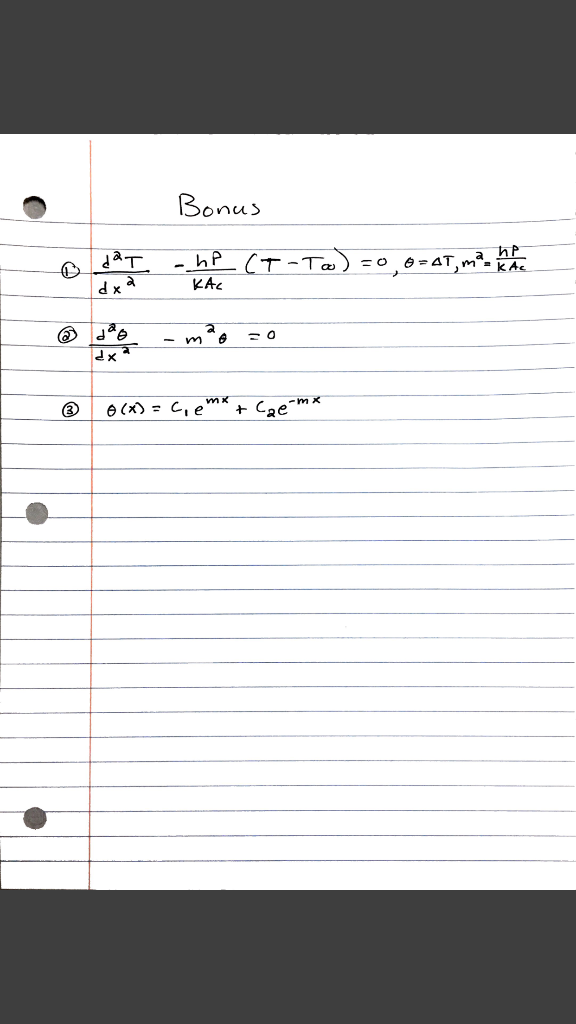 Bonus
① d²T/dx² - hP/KAc (T - T∞) = 0, θ = ΔT, m² = hP/KAc
② d²θ/dx² - m²θ = 0
③ θ(x) = C₁e^mx + C₂e^-mx